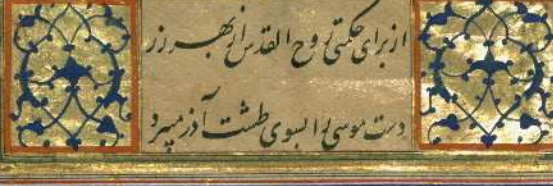 از برای حکمتی روح القدس از بهر زر
دست موسی را بسوی طشت آذر میبرد